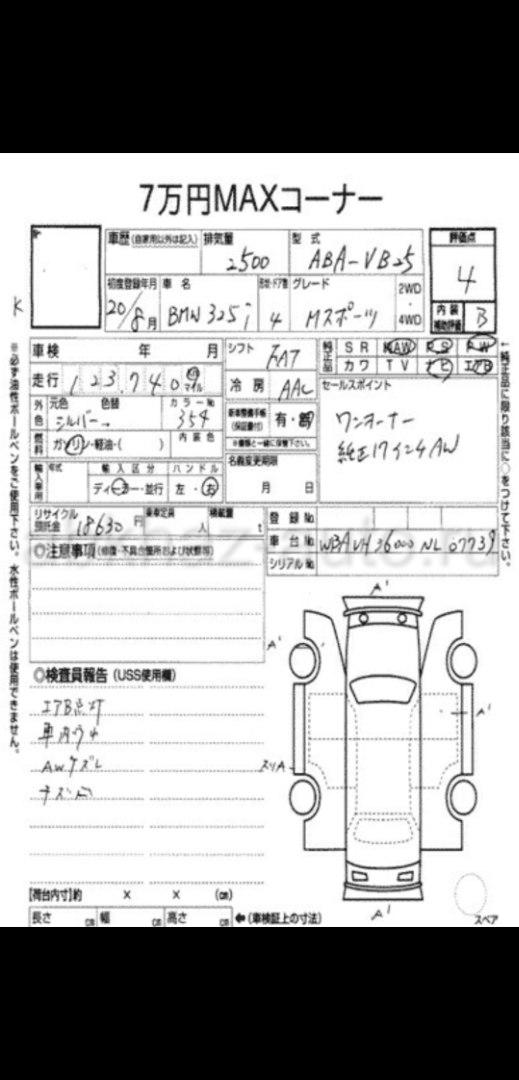 7万円MAXコーナー
車歴(自家用以外は記入) 排気量 型式 評価点
2500 ABA-VB25 4
初度登録年月 車名 グレード 2WD
20/8月 BMW325i 4 Mスポーツ 4WD
内装 補助評価 B
K
車検 年 月 シフト FAT 純正品 SR AW PS PW
カワ TV ナビ エアB
走行 123,740 マイル 冷房 AAC セールスポイント
外色 元色 色替 カラーNo
シルバー 354
新車整備手帳(保証書付) 有・無
ワンオーナー
純正17インチAW
燃料 ガソリン・軽油・( ) 内装色
※書類と一緒に保管下さい。
輸入車用 年式 輸入区分 ハンドル
ディーラー・並行 左・右
名義変更期限
月 日
リサイクル預託金 18630円 乗車定員 人 積載量 t
登録No.
車台No. WBAVH36000NL07739
シリアルNo.
◎注意事項(修復・不具合箇所および状態等)
◎検査員報告(USS使用欄)
エアB点灯
AWキズ
A'
A'
A'
スリA
A'
【荷台内寸】約 × × (cm)
長さ cm 幅 cm 高さ cm ←(車検証上の寸法)
スペア
※必ず油性ボールペンをご使用下さい。水性ボールペンは使用できません。
←純正品に限り該当に○をつけて下さい。